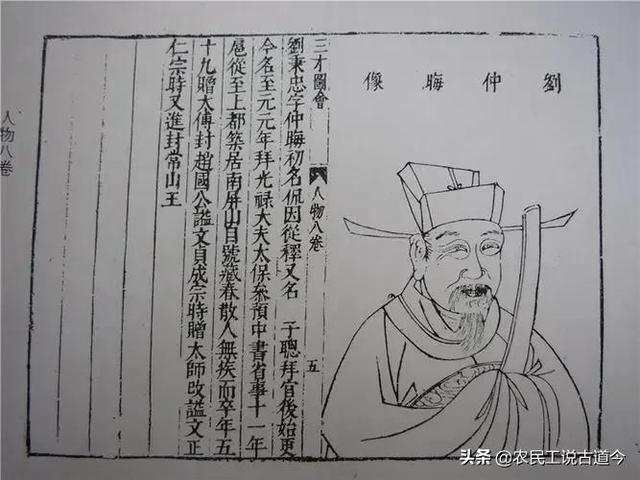 劉仲晦像
三才圖會
人物八卷
五
劉秉忠字仲晦初名侃因從釋又名 子聰拜官後始更
今名至元元年拜光祿大夫太保叅預中書省事十一年
扈從至上都築居南屏山自號藏春散人無疾而卒年五
十九贈太傅封趙國公謚文貞成宗時贈太師改謚文正
仁宗時又進封常山王
人物八卷
头条 @农民工说古道今